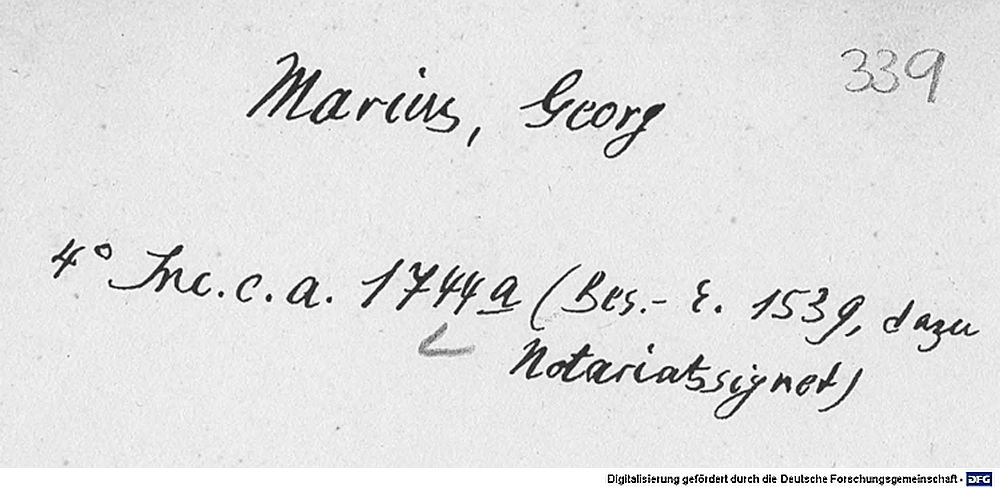 339
Marius, Georg
4° Inc. c. a. 1744a (Bes.- E. 1539, dazu
Notariatssignet)
Digitalisierung gefördert durch die Deutsche Forschungsgemeinschaft - DFG